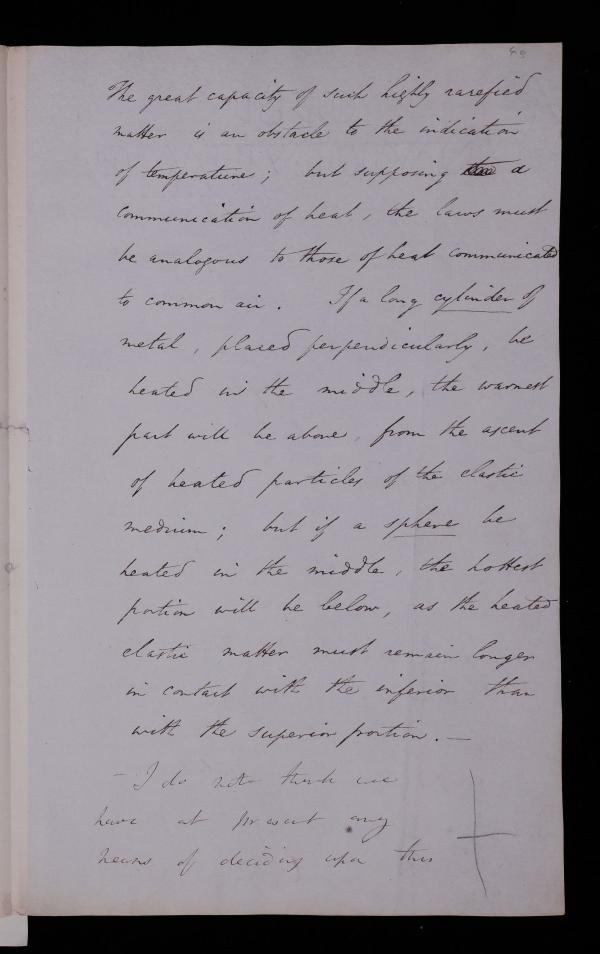 49
The great capacity of such highly rarefied
matter is an obstacle to the indication
of temperature; but supposing a
communication of heat, the laws must
be analogous to those of heat communicated
to common air. If a long cylinder of
metal, placed perpendicularly, be
heated in the middle, the warmest
part will be above, from the ascent
of heated particles of the elastic
medium; but if a sphere be
heated in the middle, the hottest
portion will be below, as the heated
elastic matter must remain longer
in contact with the inferior than
with the superior portion. —
— I do not think we
have at present any
means of deciding upon this